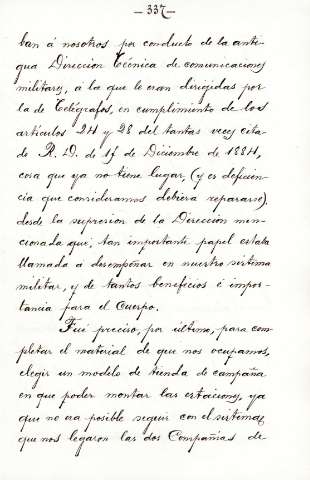 — 337—
ban á nosotros por conducto de la anti-
gua Dirección Técnica de comunicaciones
militares, a la que le eran dirigidas por
la de Telégrafos, en cumplimiento de los
artículos 24 y 28 del tantas veces cita-
do R. D. de 17 de Diciembre de 1884,
cosa que ya no tiene lugar, (y es deficien-
cia que consideramos debiera repararse)
desde la supresion de la Dirección men-
cionada que, tan importante papel estaba
llamada a desempeñar en nuestro sistema
militar, y de tantos beneficios é impor-
tancia para el Cuerpo.
Fué preciso, por último, para com-
pletar el material de que nos ocupamos,
elegir un modelo de tienda de campaña
en que poder montar las estaciones, ya
que no era posible seguir con el sistema
que nos legaron las dos Compañias de